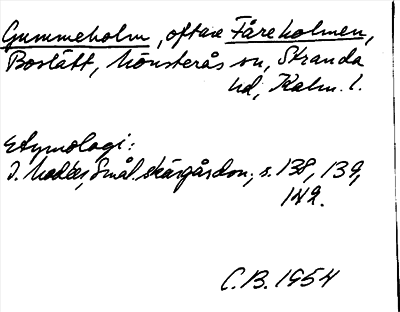 Gummeholm, oftare Fåreholmen,
Boslätt, Mönsterås sn, Stranda
hd, Kalm. l.
Etymologi:
I. Modéer, Smål. skärgårdsn., s. 138, 139,
142.
C.B. 1954